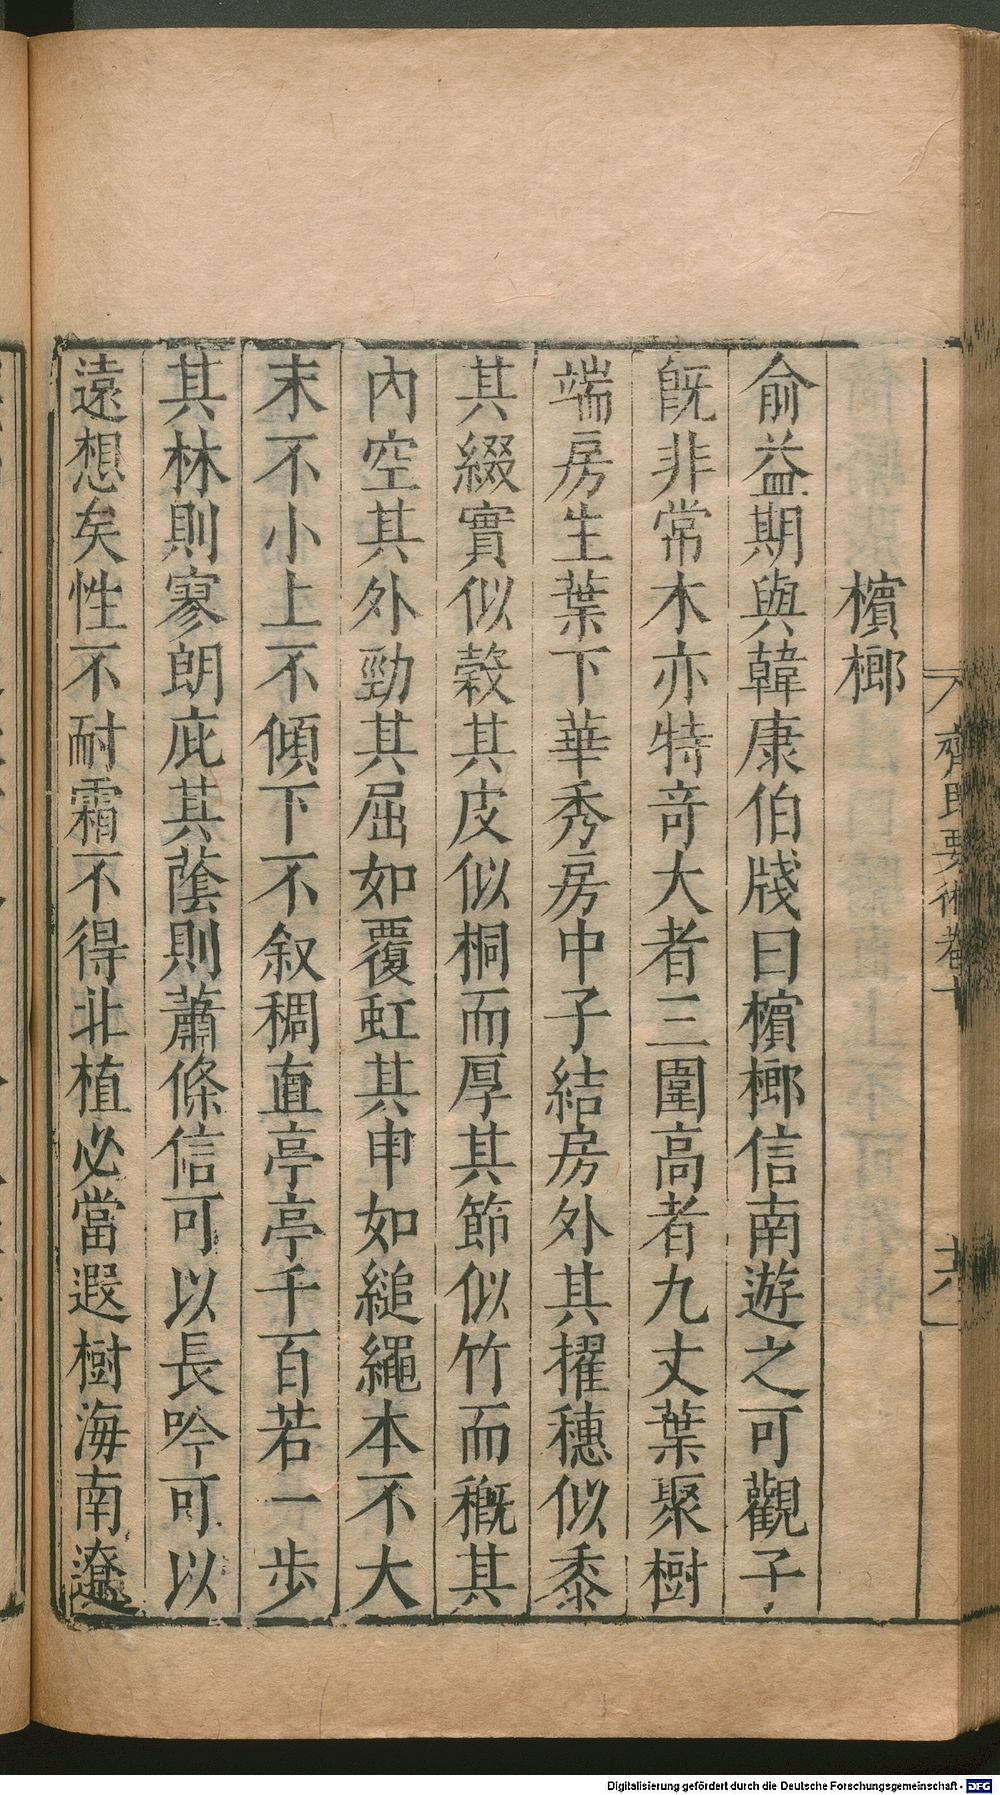 檳榔
俞益期與韓康伯牋曰檳榔信南遊之可觀子
旣非常木亦特奇大者三圍高者九丈葉聚樹
端房生葉下華秀房中子結房外其擢穗似黍
其綴實似穀其皮似桐而厚其節似竹而穊其
內空其外勁其屈如覆虹其申如縋繩本不大
末不小上不傾下不叙稠直亭亭千百若一步
其林則寥朗庇其蔭則蕭條信可以長吟可以
遠想矣性不耐霜不得北植必當遐樹海南遼
齊民要術卷十
Digitalisierung gefördert durch die Deutsche Forschungsgemeinschaft - DFG